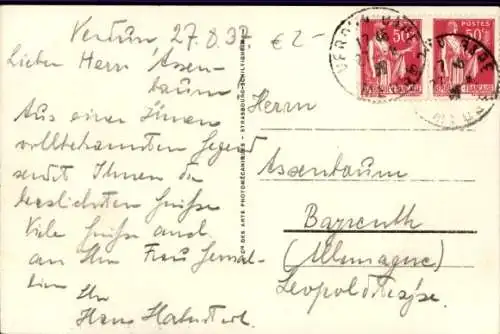 Verdun, 27.8.37
€ 2-
Lieber Herr Assen-
baum
Aus einer Ihnen
vollbekannten Gegend
sendet Ihnen die
herzlichsten Grüße
Viele Grüße auch
an Ihre Frau Gemah-
lin
Ihr
Hans
Herrn
Assenbaum
Bayreuth
(Allemagne)
Leopoldstraße
POSTES
50c
50c
STRASBOURG-SCHILTIGHEIM